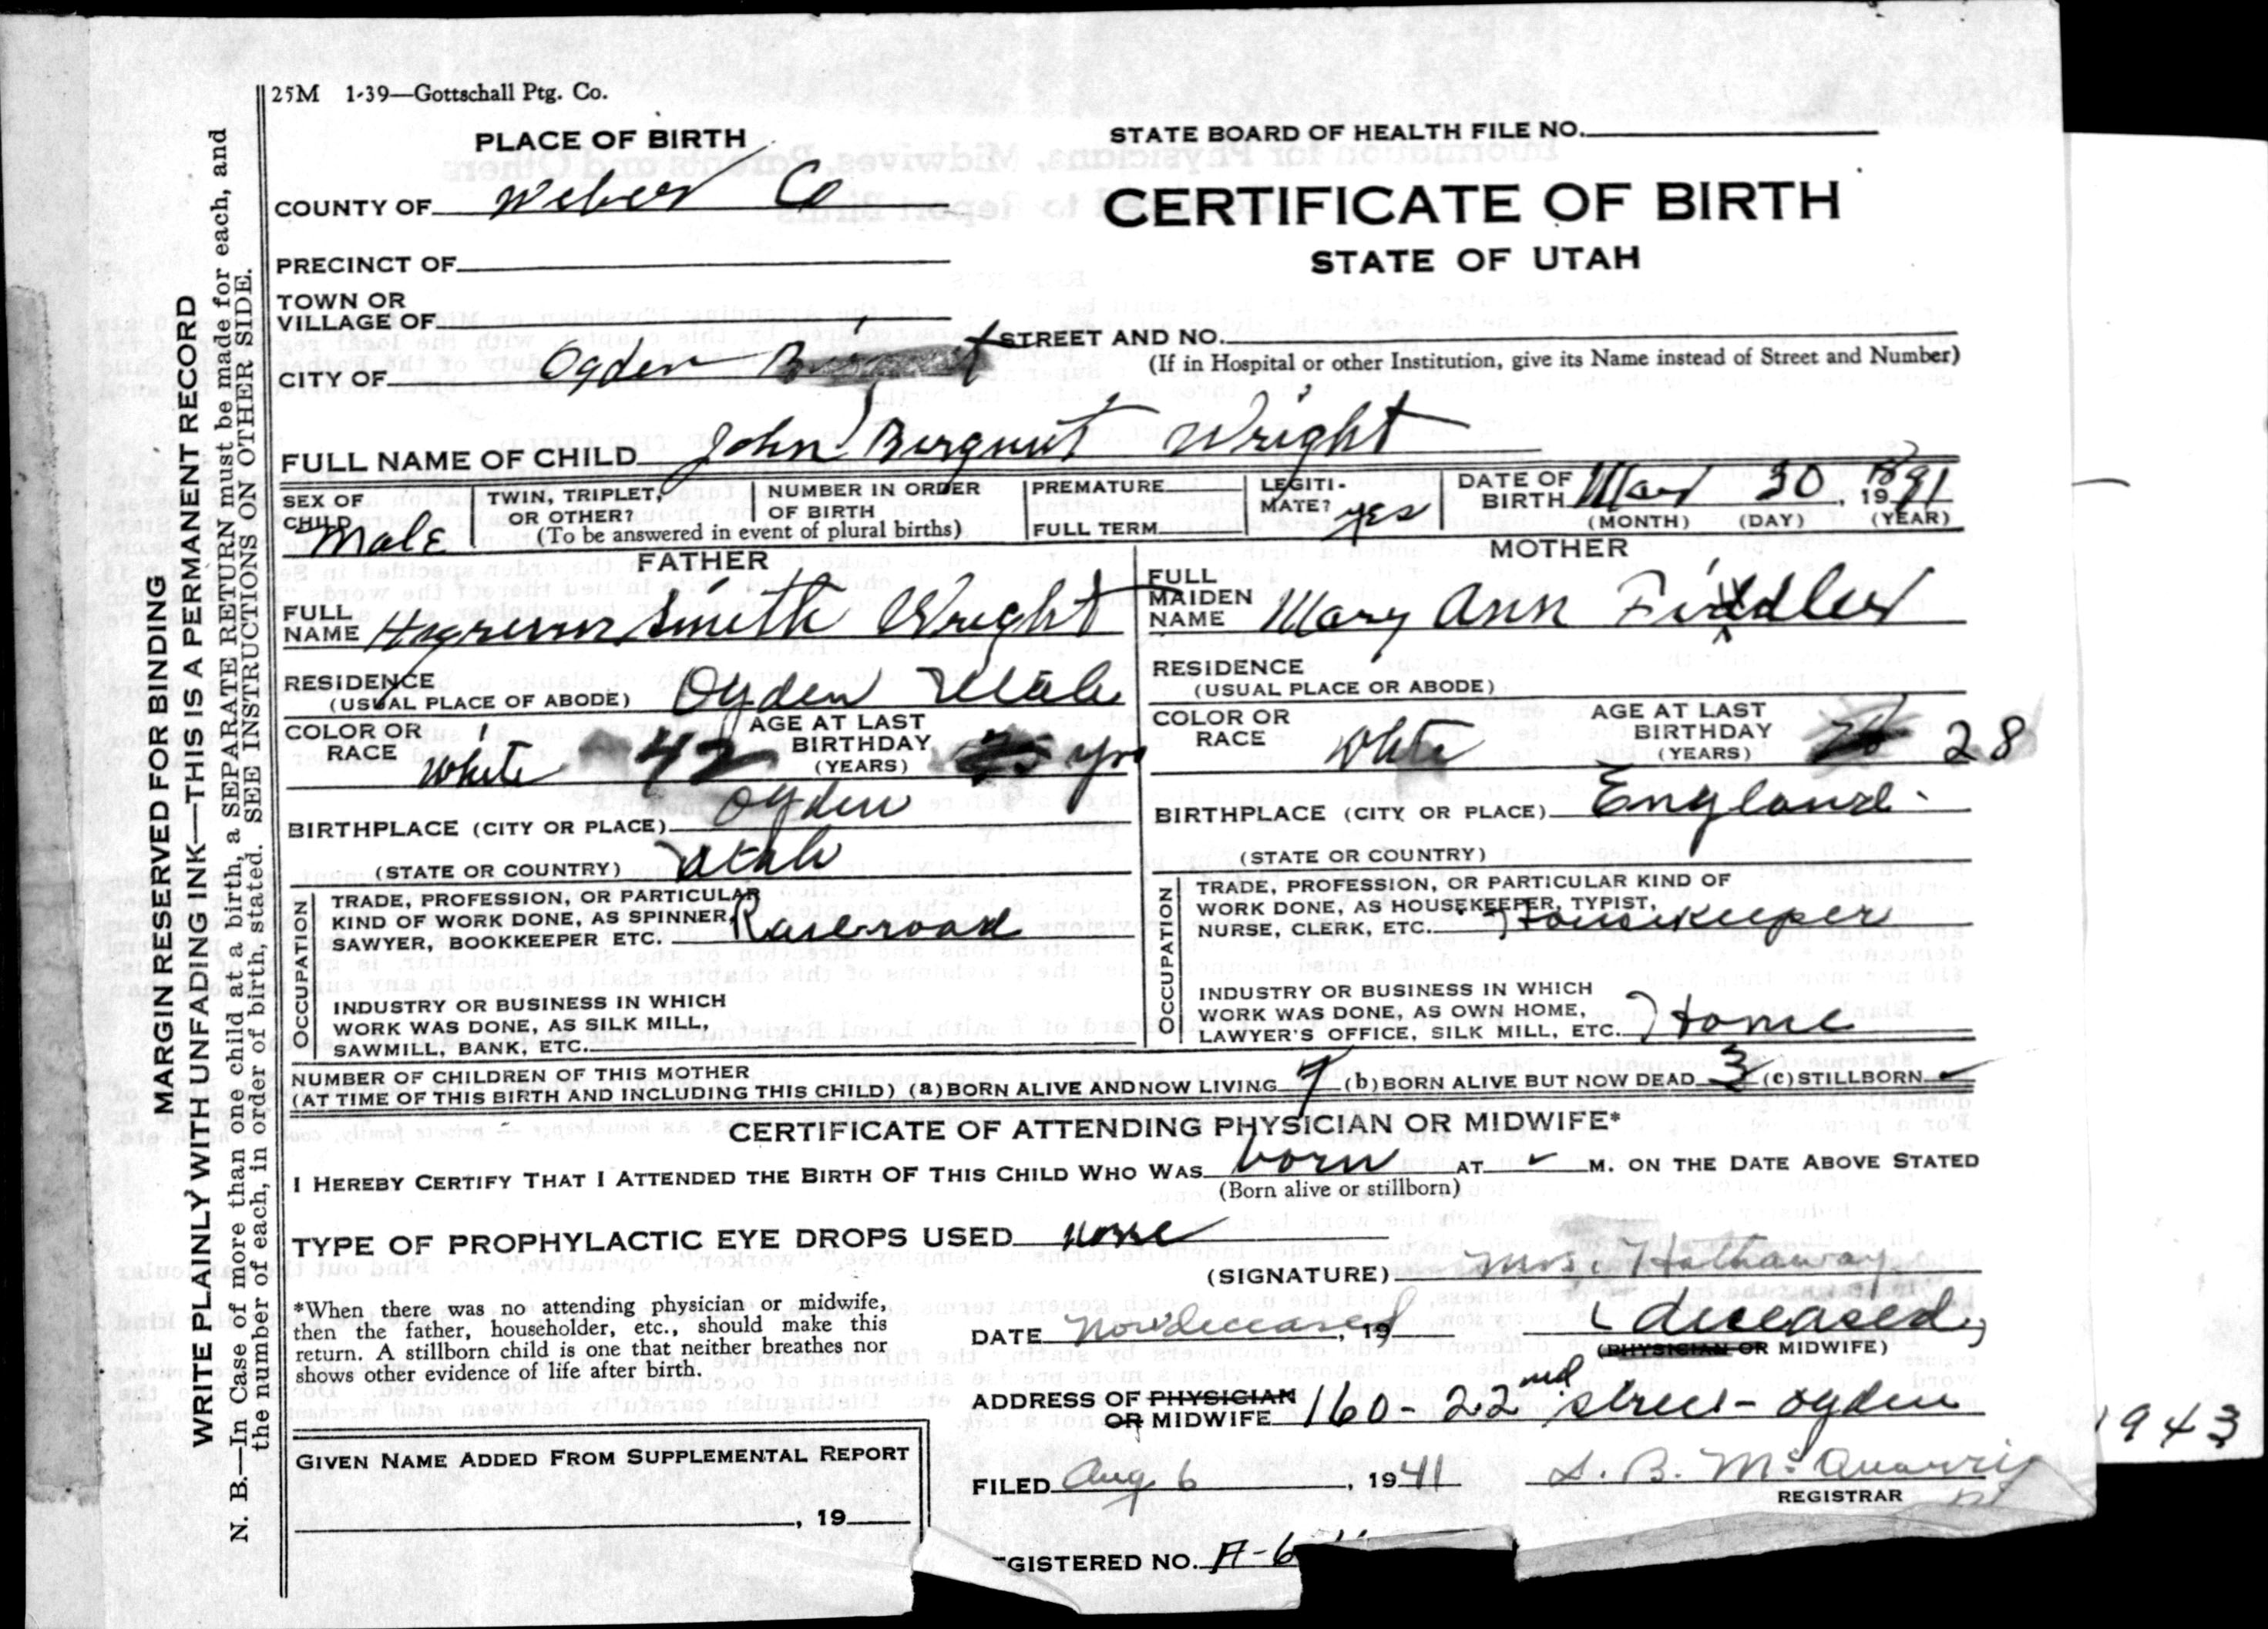 25M 1-39—Gottschall Ptg. Co.
PLACE OF BIRTH
STATE BOARD OF HEALTH FILE NO.
COUNTY OF Weber Co
CERTIFICATE OF BIRTH
STATE OF UTAH
PRECINCT OF
TOWN OR
VILLAGE OF
STREET AND NO.
(If in Hospital or other Institution, give its Name instead of Street and Number)
CITY OF Ogden
FULL NAME OF CHILD John Berquist Wright
SEX OF
CHILD Male
TWIN, TRIPLET,
OR OTHER?
NUMBER IN ORDER
OF BIRTH
(To be answered in event of plural births)
PREMATURE
FULL TERM
LEGITI-
MATE? yes
DATE OF
BIRTH Mar 30, 1891
(MONTH) (DAY) (YEAR)
FATHER
FULL
NAME Smith Wright
RESIDENCE
(USUAL PLACE OF ABODE) Ogden Utah
COLOR OR
RACE White
AGE AT LAST
BIRTHDAY
(YEARS) 42 yrs
BIRTHPLACE (CITY OR PLACE) Ogden
(STATE OR COUNTRY) Utah
OCCUPATION
TRADE, PROFESSION, OR PARTICULAR
KIND OF WORK DONE, AS SPINNER,
SAWYER, BOOKKEEPER ETC. Railroad
INDUSTRY OR BUSINESS IN WHICH
WORK WAS DONE, AS SILK MILL,
SAWMILL, BANK, ETC.
MOTHER
FULL
MAIDEN
NAME Mary Ann Fiddler
RESIDENCE
(USUAL PLACE OR ABODE)
COLOR OR
RACE White
AGE AT LAST
BIRTHDAY
(YEARS) 28
BIRTHPLACE (CITY OR PLACE) England.
(STATE OR COUNTRY)
OCCUPATION
TRADE, PROFESSION, OR PARTICULAR KIND OF
WORK DONE, AS HOUSEKEEPER, TYPIST,
NURSE, CLERK, ETC. Housekeeper
INDUSTRY OR BUSINESS IN WHICH
WORK WAS DONE, AS OWN HOME,
LAWYER'S OFFICE, SILK MILL, ETC. Home
NUMBER OF CHILDREN OF THIS MOTHER
(AT TIME OF THIS BIRTH AND INCLUDING THIS CHILD) (a) BORN ALIVE AND NOW LIVING 7 (b) BORN ALIVE BUT NOW DEAD 3 (c) STILLBORN ✓
CERTIFICATE OF ATTENDING PHYSICIAN OR MIDWIFE*
I HEREBY CERTIFY THAT I ATTENDED THE BIRTH OF THIS CHILD WHO WAS born AT ✓ M. ON THE DATE ABOVE STATED
(Born alive or stillborn)
TYPE OF PROPHYLACTIC EYE DROPS USED none
(SIGNATURE) Mrs. Hathaway
*When there was no attending physician or midwife,
then the father, householder, etc., should make this
return. A stillborn child is one that neither breathes nor
shows other evidence of life after birth.
DATE Now deceased, 19
(deceased)
(PHYSICIAN OR MIDWIFE)
ADDRESS OF PHYSICIAN
OR MIDWIFE 160-22nd street - Ogden
GIVEN NAME ADDED FROM SUPPLEMENTAL REPORT
, 19
FILED Aug 6, 1941
S. B. McQuarrie
REGISTRAR
GISTERED NO. A-6
1943
MARGIN RESERVED FOR BINDING
WRITE PLAINLY WITH UNFADING INK—THIS IS A PERMANENT RECORD
N. B.—In Case of more than one child at a birth, a SEPARATE RETURN must be made for each, and
the number of each, in order of birth, stated. SEE INSTRUCTIONS ON OTHER SIDE.